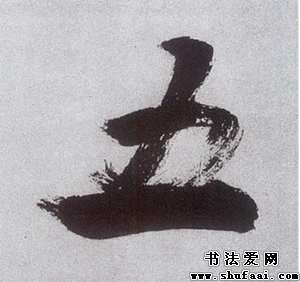 五
书法爱网
www.shufaai.com